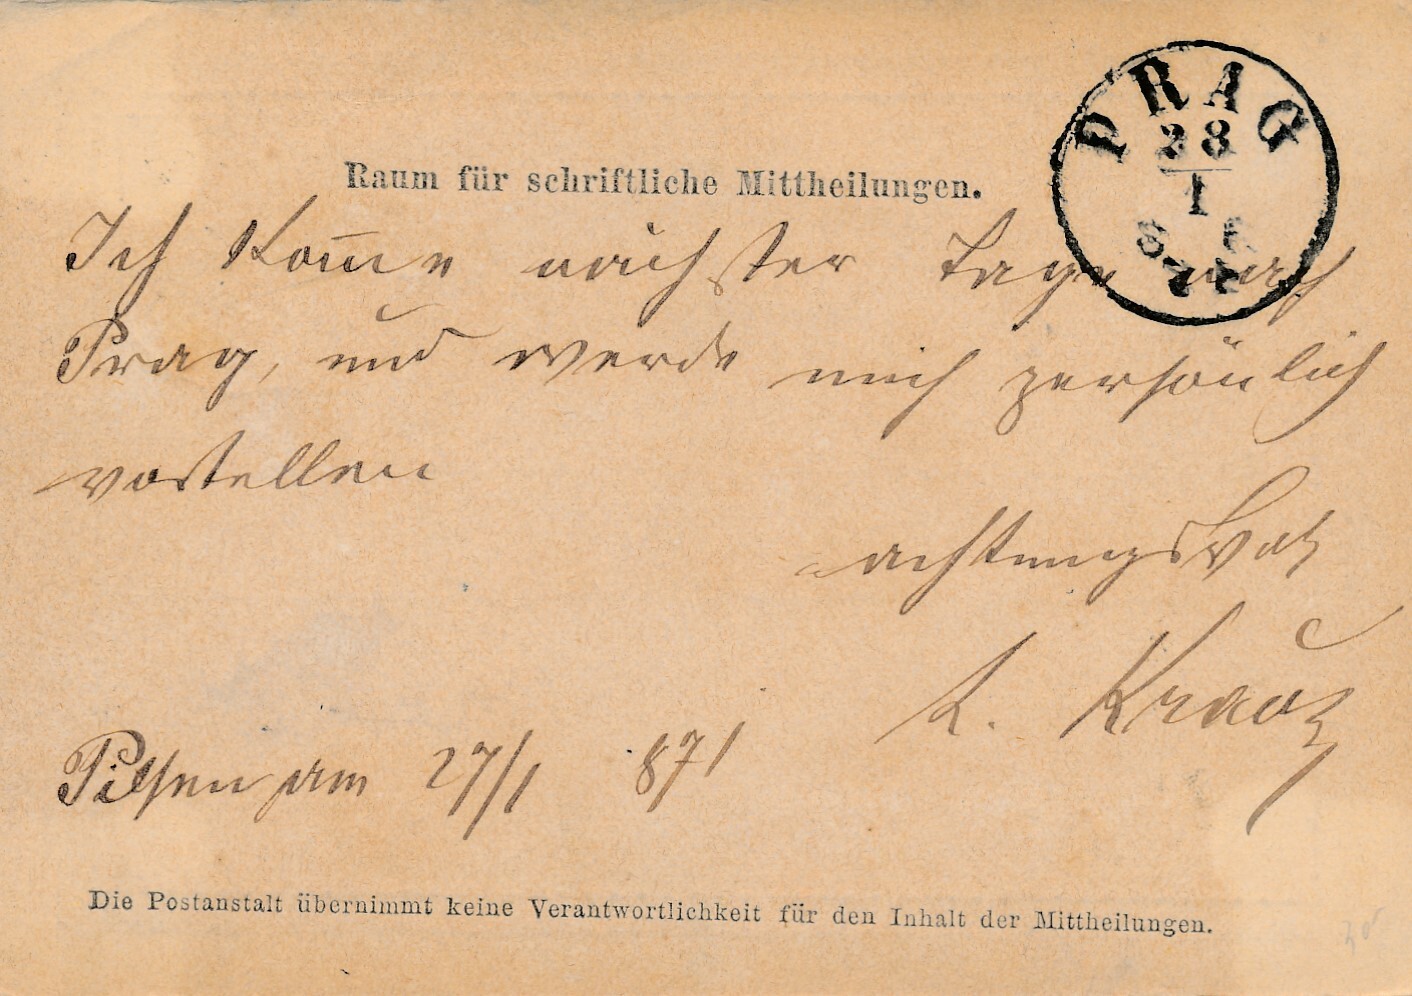 PRAG
28
1
Raum für schriftliche Mittheilungen.
Ich kom̅e nächster Tage nach
Prag, und werde mich persönlich
vorstellen
achtungsvoll
Pilsen am 27/1 871
Die Postanstalt übernimmt keine Verantwortlichkeit für den Inhalt der Mittheilungen.